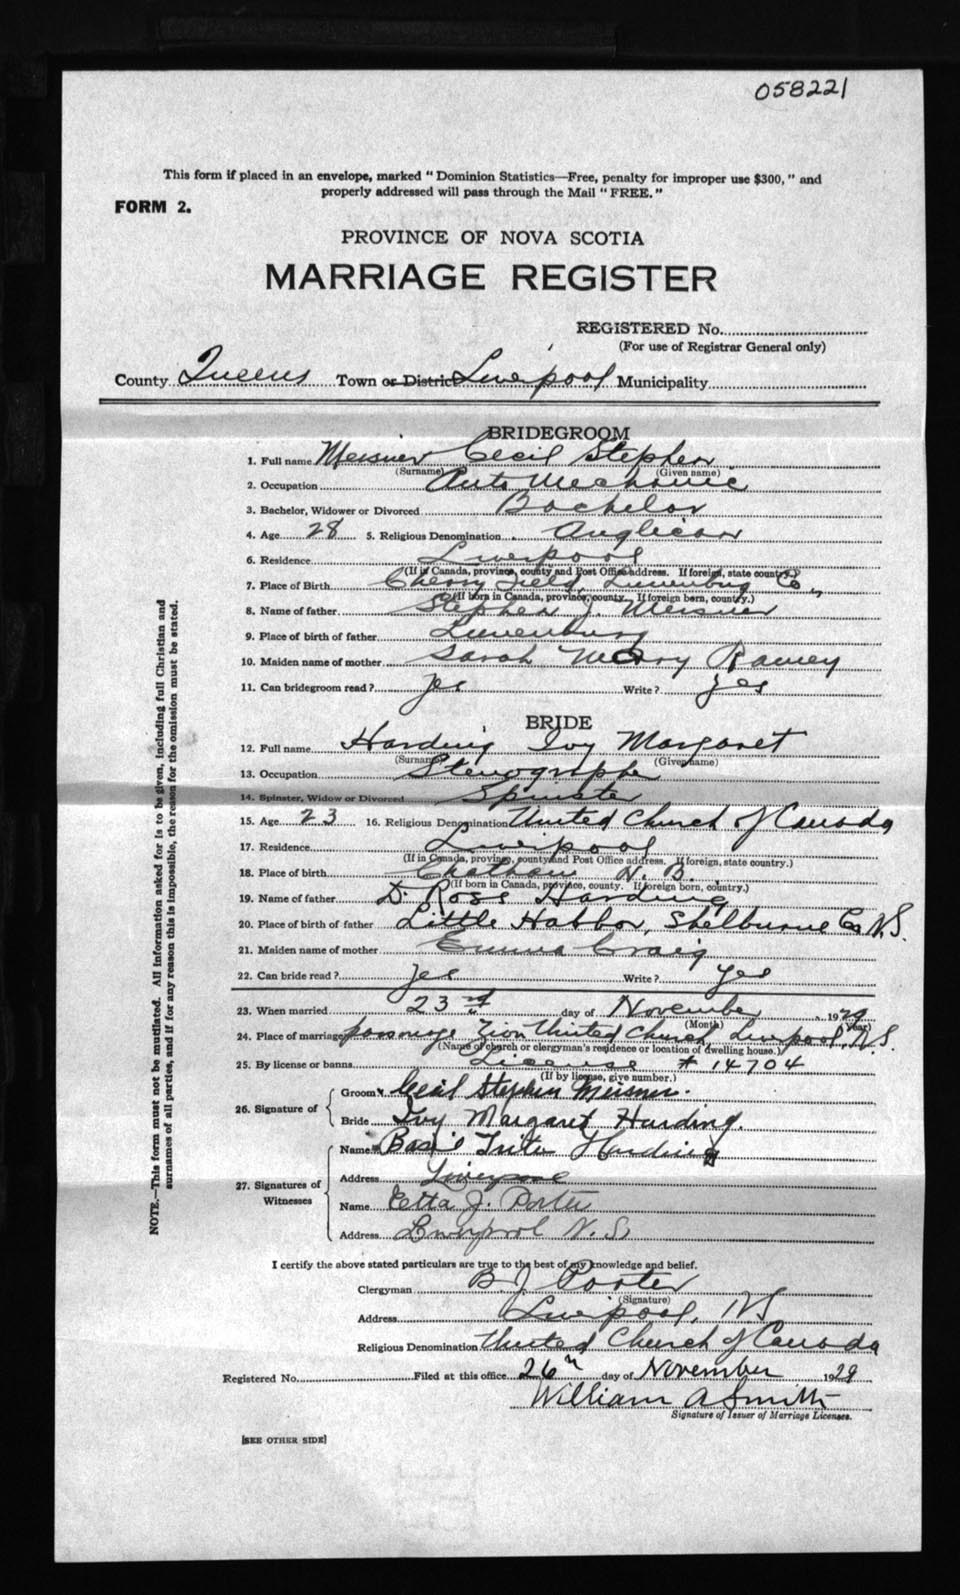 058221
This form if placed in an envelope, marked "Dominion Statistics—Free, penalty for improper use $300," and
properly addressed will pass through the Mail "FREE."
FORM 2.
PROVINCE OF NOVA SCOTIA
MARRIAGE REGISTER
REGISTERED No.
(For use of Registrar General only)
County Queens Town or District Liverpool Municipality
BRIDEGROOM
1. Full name Meisner Cecil Stephen
(Surname) (Given name)
2. Occupation Auto Mechanic
3. Bachelor, Widower or Divorced Bachelor
4. Age 28 5. Religious Denomination Anglican
6. Residence Liverpool
(If in Canada, province, county and Post Office address. If foreign, state country.)
7. Place of Birth Cherryfield, Lunenburg Co.,
(If born in Canada, province, county. If foreign born, country.)
8. Name of father Stephen J. Meisner
9. Place of birth of father Lunenburg
10. Maiden name of mother Sarah Mary Ramey
11. Can bridegroom read? yes Write? yes
BRIDE
12. Full name Harding Ivy Margaret
(Surname) (Given name)
13. Occupation Stenographe
14. Spinster, Widow or Divorced Spinster
15. Age 23 16. Religious Denomination United Church of Canada
17. Residence Liverpool
(If in Canada, province, county and Post Office address. If foreign, state country.)
18. Place of birth Chatham N. B.
(If born in Canada, province, county. If foreign born, country.)
19. Name of father D. Ross Harding
20. Place of birth of father Little Habbor, Shelburne Co N.S.
21. Maiden name of mother Emma Craig
22. Can bride read? yes Write? yes
23. When married 23rd day of November 1929
(Month) (Year)
24. Place of marriage parsonage Zion United Church, Liverpool, N.S.
(Name of church or clergyman's residence or location of dwelling house.)
25. By license or banns License # 14704
(If by license, give number.)
26. Signature of
Groom Cecil Stephen Meisner.
Bride Ivy Margaret Harding.
27. Signatures of Witnesses
Name Basil Harding
Address Liverpool
Name Etta J. Porter
Address Liverpool N.S.
I certify the above stated particulars are true to the best of my knowledge and belief.
Clergyman B. J. Porter
(Signature)
Address Liverpool, N.S
Religious Denomination United Church of Canada
Registered No. Filed at this office 26th day of November 1929
William A Smith
Signature of Issuer of Marriage Licenses.
[SEE OTHER SIDE]
NOTE.—This form must not be mutilated. All information asked for is to be given, including full Christian and
surnames of all parties, and if for any reason this is impossible, the reason for the omission must be stated.